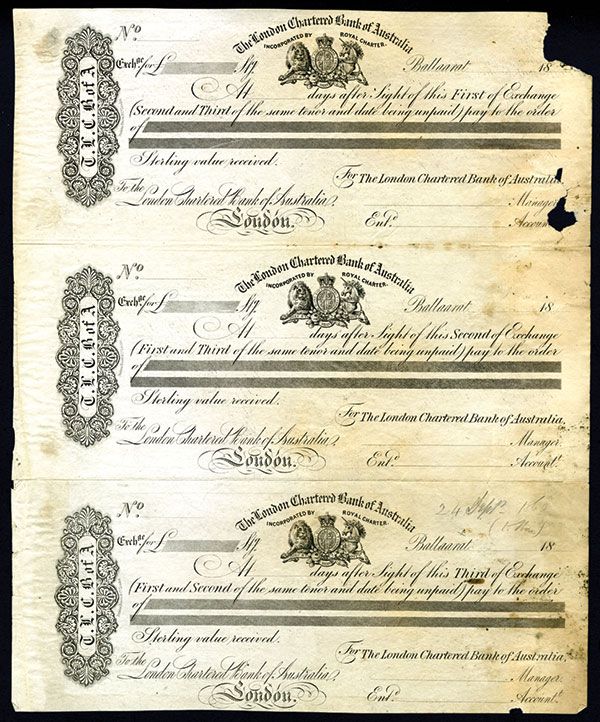 No
The London Chartered Bank of Australia
INCORPORATED BY ROYAL CHARTER.
Exchge for £ Stg. Ballaarat 18
At days after Sight of this First of Exchange
(Second and Third of the same tenor and date being unpaid) pay to the order
of
Sterling value received.
For The London Chartered Bank of Australia,
To the
London Chartered Bank of Australia, Manager.
London. Entd. Account
T. L. C. B of A
No
The London Chartered Bank of Australia
INCORPORATED BY ROYAL CHARTER.
Exchge for £ Stg. Ballaarat 18
At days after Sight of this Second of Exchange
(First and Third of the same tenor and date being unpaid) pay to the order
of
Sterling value received.
For The London Chartered Bank of Australia,
To the
London Chartered Bank of Australia, Manager.
London. Entd. Accountt.
T. L. C. B of A
No
The London Chartered Bank of Australia
INCORPORATED BY ROYAL CHARTER.
24 Septr
Exchge for £ Stg. Ballaarat 18
At days after Sight of this Third of Exchange
(First and Second of the same tenor and date being unpaid) pay to the order
of
Sterling value received.
For The London Chartered Bank of Australia,
To the
London Chartered Bank of Australia, Manager.
London. Entd. Accountt.
T. L. C. B of A